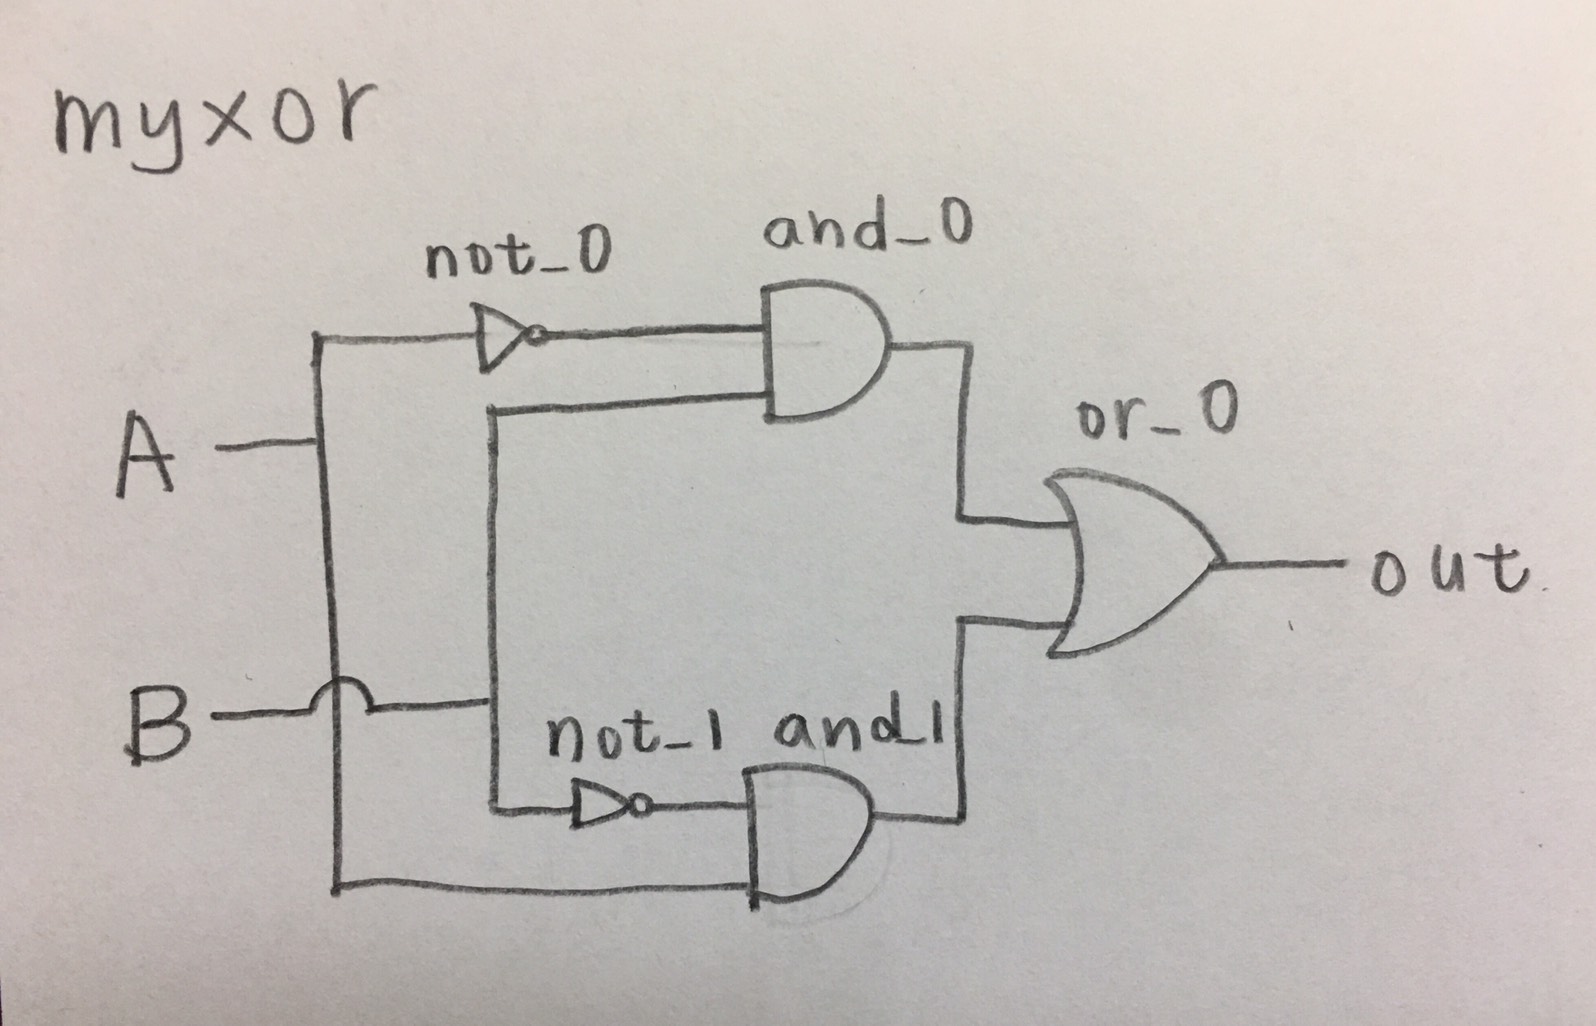 myxor
not_0
and_0
A
or_0
out
B
not_1
and_1